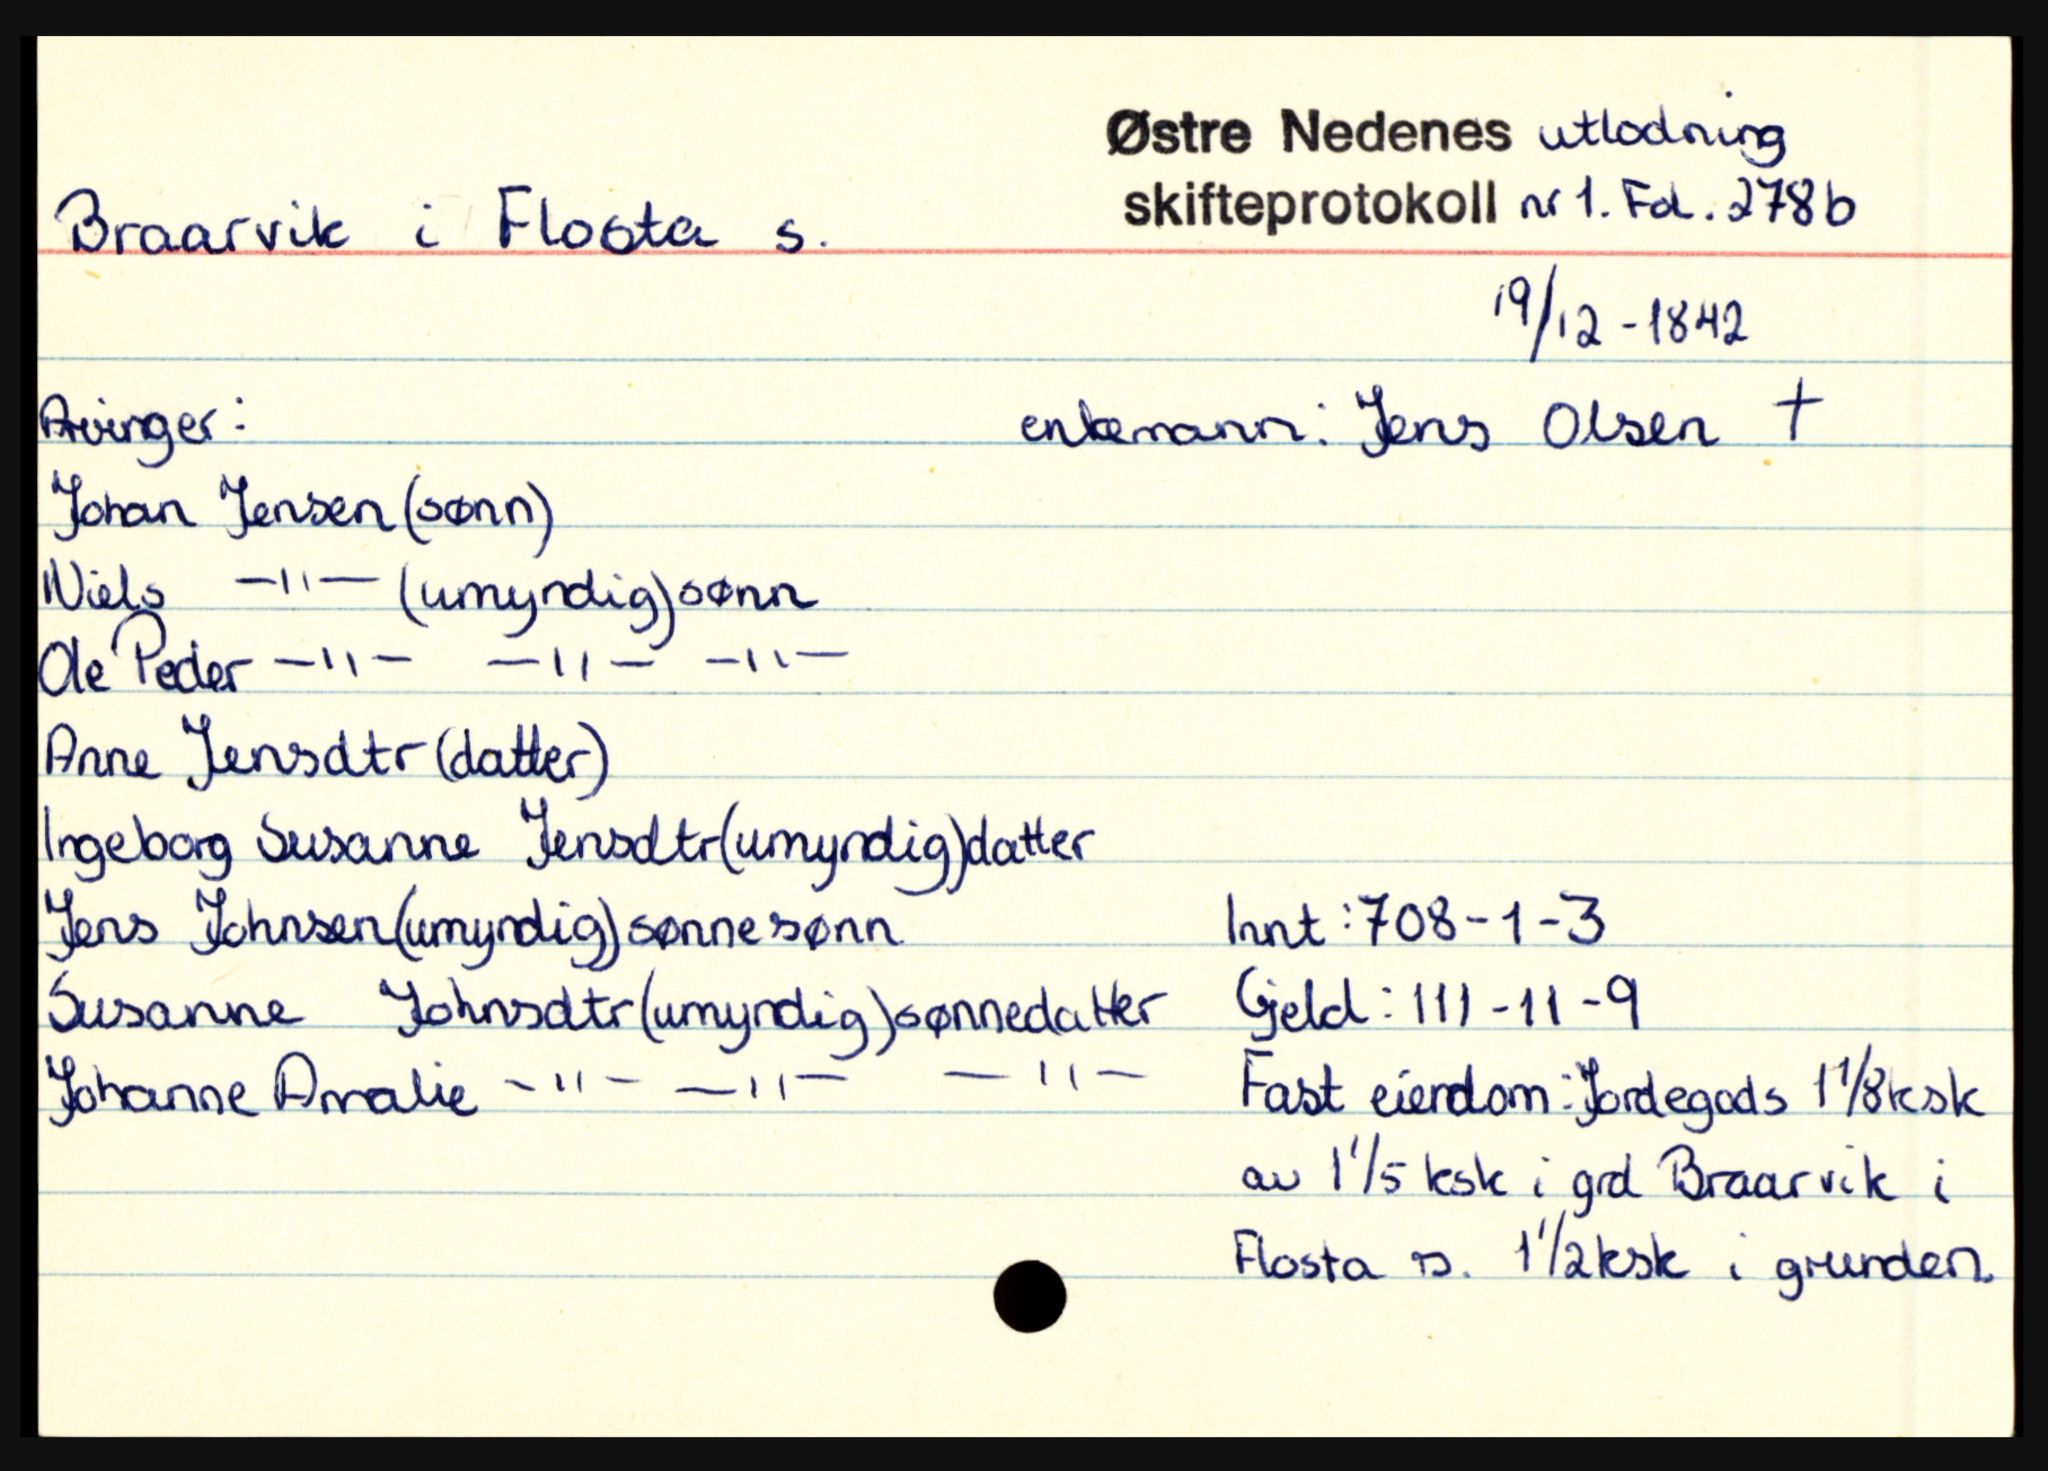 Østre Nedenes utlodning
skifteprotokoll nr 1. Fol. 278b
Braarvik i Flosta s.
19/12 - 1842
Arvinger:
enkemann: Jens Olsen †
Johan Jensen (sønn)
Niels —"— (umyndig) sønn
Ole Peder —"— —"— —"—
Anne Jensdtr (datter)
Ingeborg Susanne Jensdtr (umyndig) datter
Jens Johnsen (umyndig) sønnesønn
Susanne Johnsdtr (umyndig) sønnedatter
Johanne Amalie —"— —"— —"—
Innt: 708-1-3
Gjeld: 111-11-9
Fast eiendom: Jordegods 1 1/8 ksk
av 1 1/5 ksk i grd Braarvik i
Flosta s. 1 1/2 ksk i grunden.